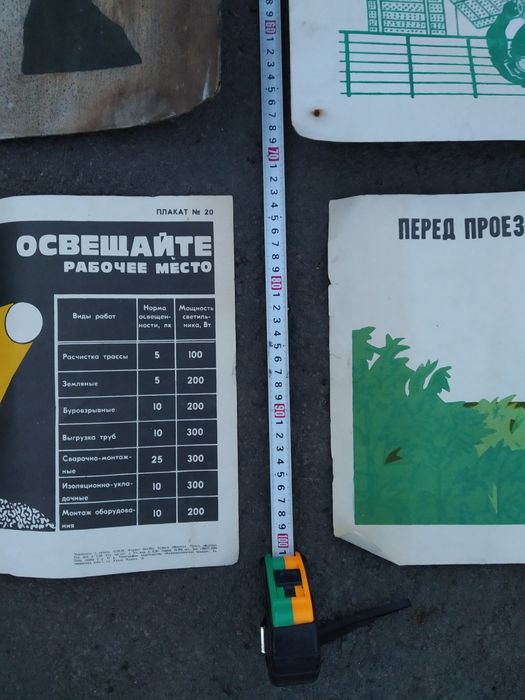 ПЛАКАТ № 20
ОСВЕЩАЙТЕ
РАБОЧЕЕ МЕСТО
Виды работ
Норма освещен-ности, лк
Мощность светиль-ника, Вт
Расчистка трассы 5 100
Земляные 5 200
Буровзрывные 10 200
Выгрузка труб 10 300
Сварочно-монтаж-
ные 25 300
Изоляционно-укла-
дочные 10 300
Монтаж оборудова-
ния 10 200
ПЕРЕД ПРОЕЗ
8
9
60
1
2
3
4
5
6
7
8
9
70
1
2
3
4
5
6
7
8
9
80
1
2
3
4
5
6
7
8
9
90
1
2
3
4
5
6
7
8
9
100